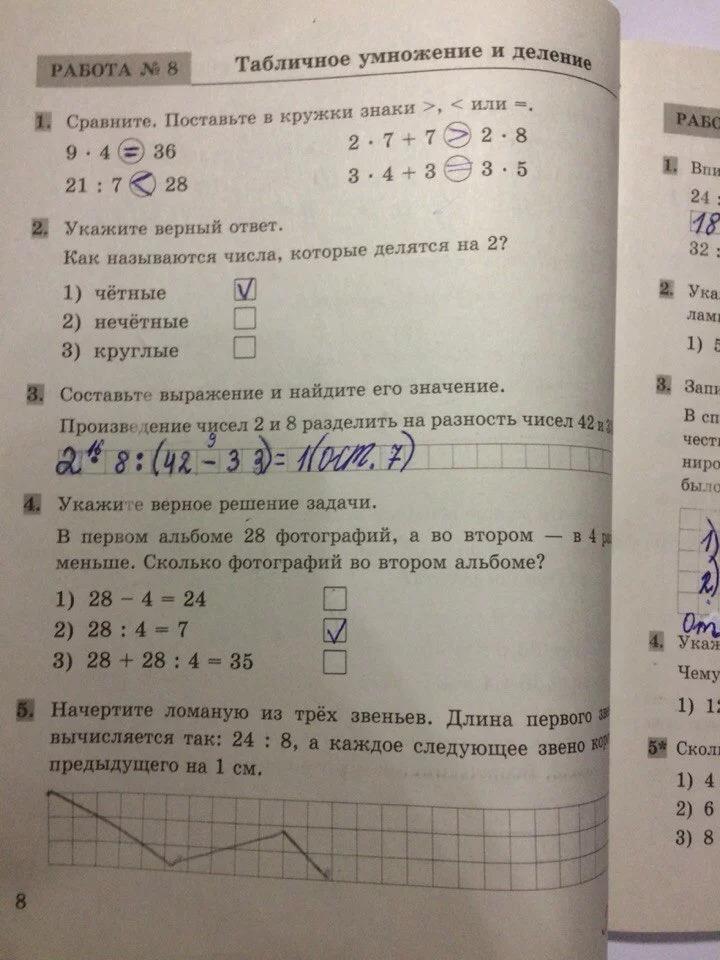 РАБОТА № 8
Табличное умножение и деление
1. Сравните. Поставьте в кружки знаки >, < или =.
9 · 4 = 36
2 · 7 + 7 > 2 · 8
21 : 7 < 28
3 · 4 + 3 = 3 · 5
2. Укажите верный ответ.
Как называются числа, которые делятся на 2?
1) чётные V
2) нечётные
3) круглые
3. Составьте выражение и найдите его значение.
Произведение чисел 2 и 8 разделить на разность чисел 42 и
16 9
2 · 8 : (42 - 33) = 1(ост. 7)
4. Укажите верное решение задачи.
В первом альбоме 28 фотографий, а во втором — в 4
меньше. Сколько фотографий во втором альбоме?
1) 28 − 4 = 24
2) 28 : 4 = 7 V
3) 28 + 28 : 4 = 35
5. Начертите ломаную из трёх звеньев. Длина первого
вычисляется так: 24 : 8, а каждое следующее звено
предыдущего на 1 см.
8
РАБО
1. Впи
24 :
18
32 :
2. Ука
лами
1)
3. Запи
В сп
чест
ниро
было
1)
2)
От
4. Укаж
Чему
1) 12
5* Скол
1) 4
2) 6
3) 8